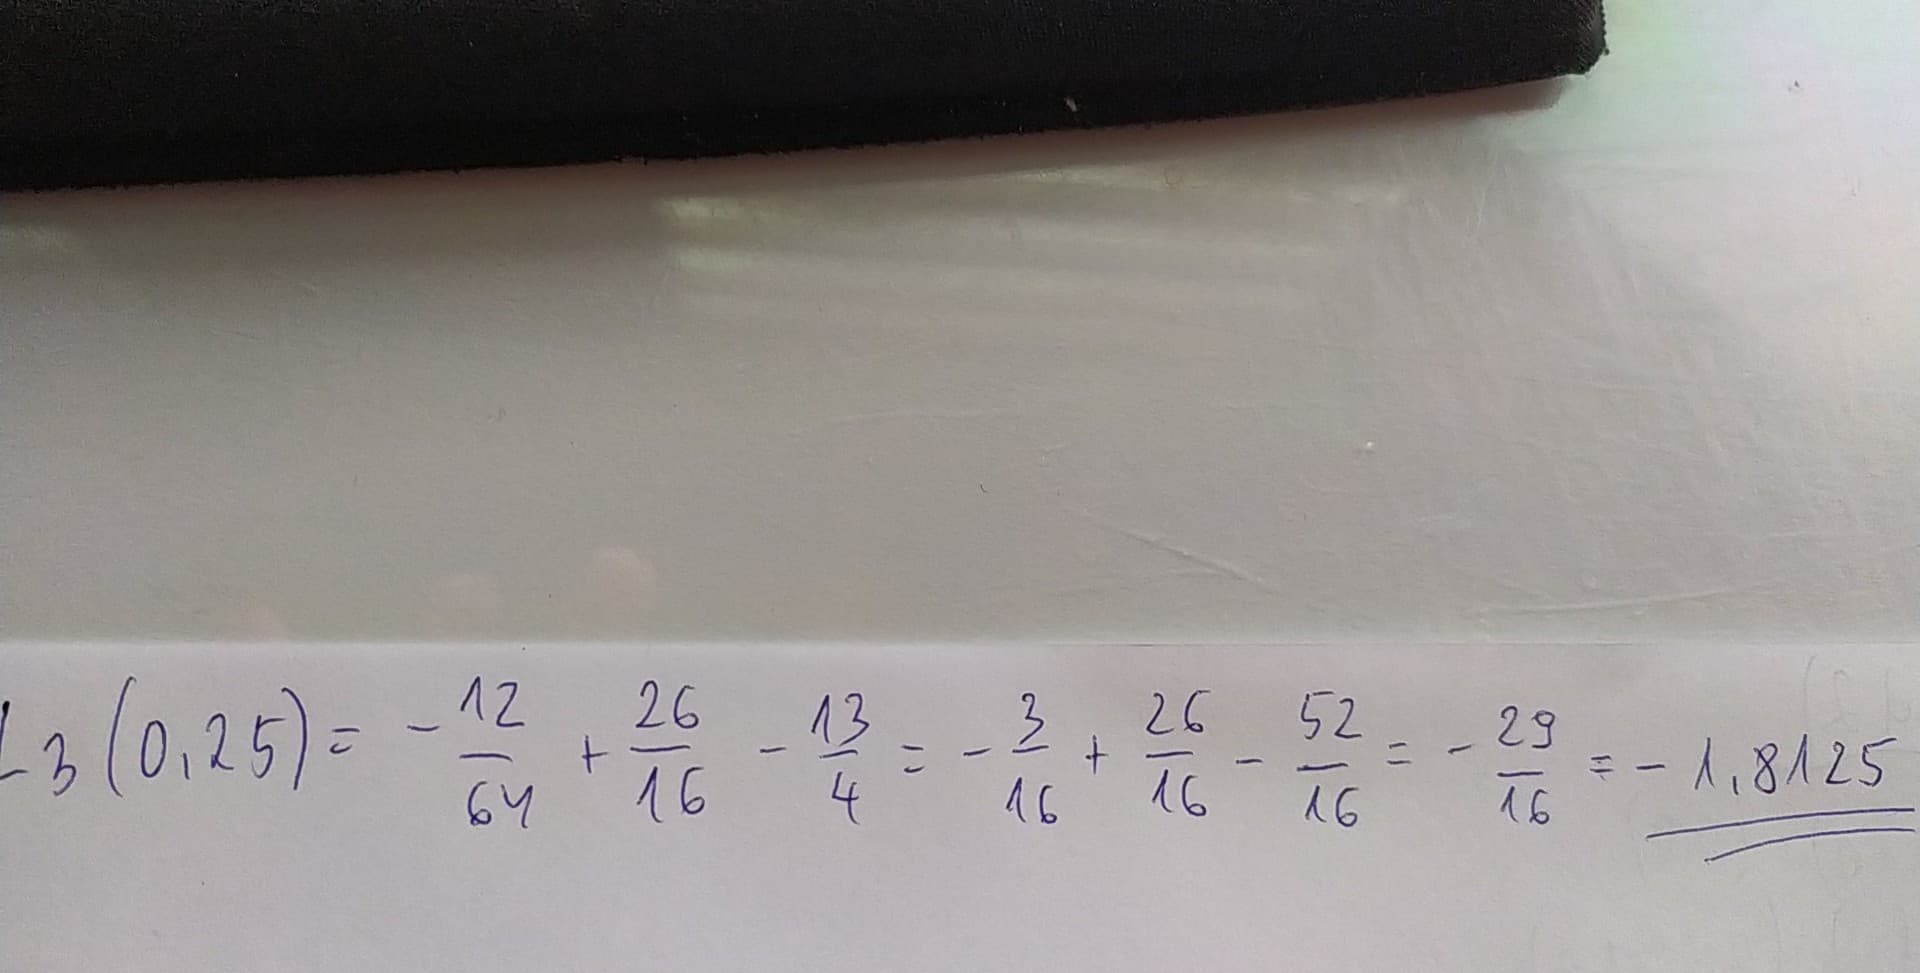 L3(0,25) = - 12/64 + 26/16 - 13/4 = - 3/16 + 26/16 - 52/16 = - 29/16 = - 1,8125